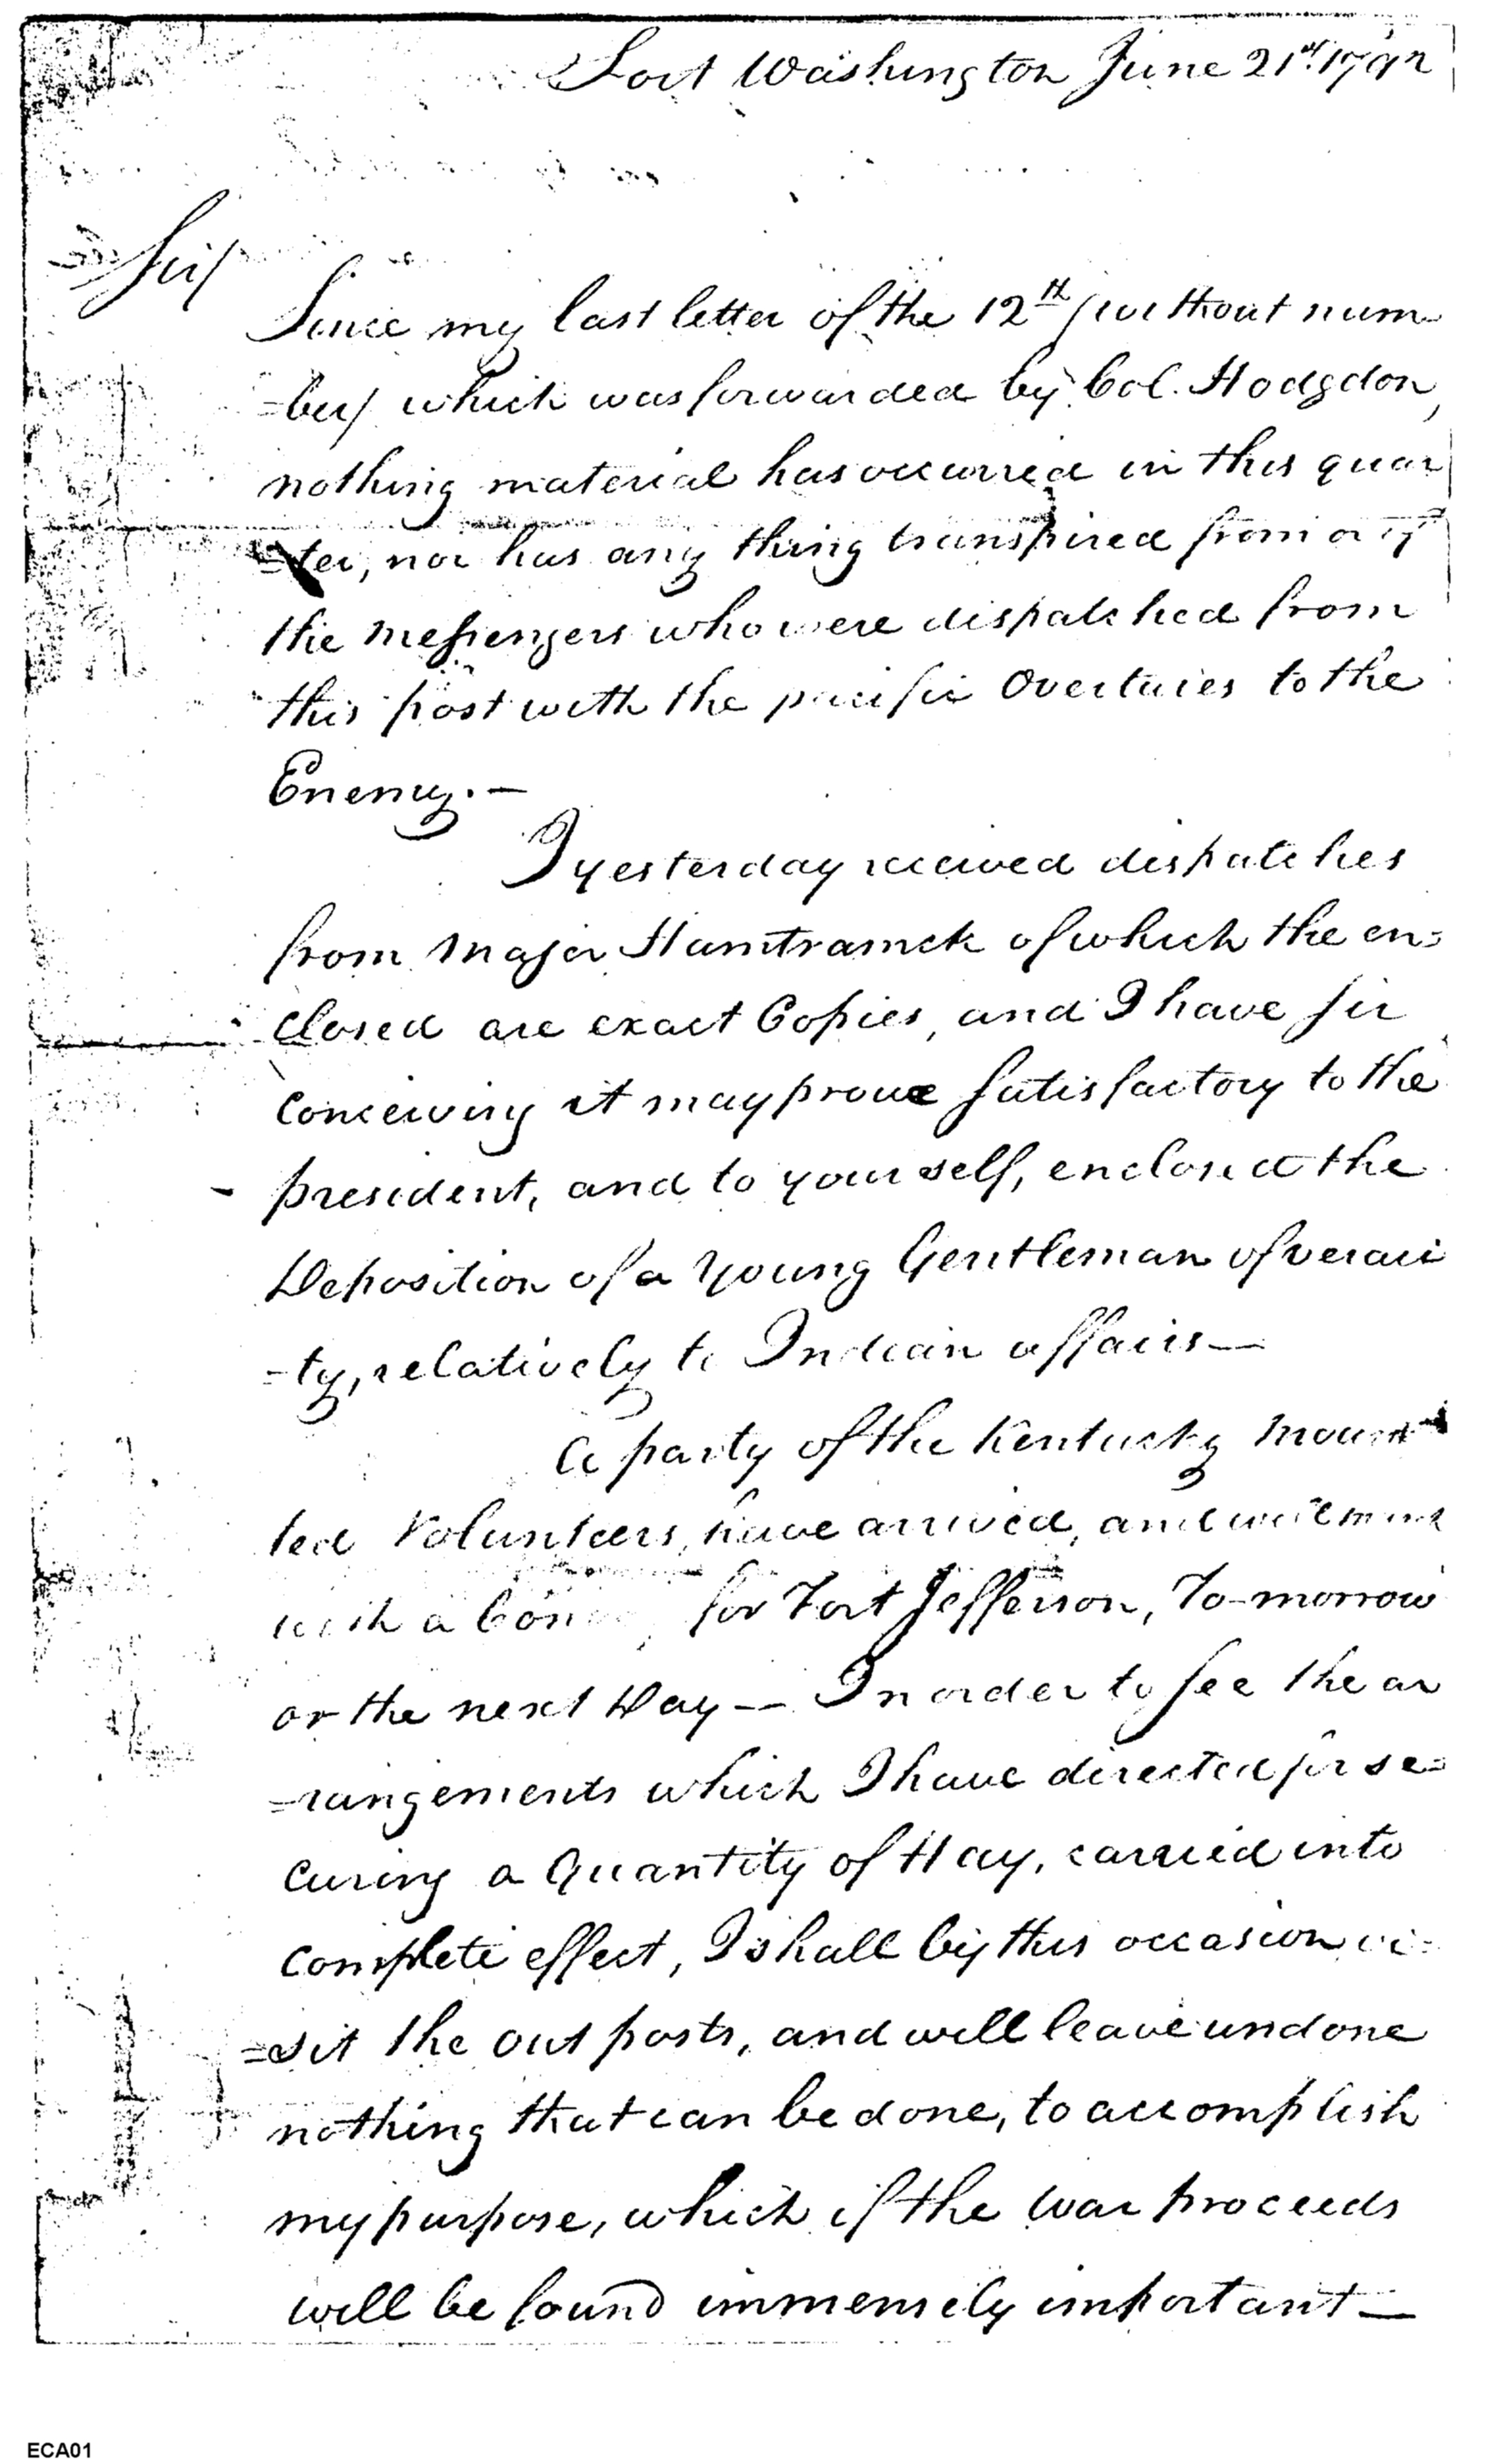 Fort Washington June 21st. 1792
Sir/
Since my last letter of the 12th (without num-
=ber) which was forwarded by Col. Hodgdon,
nothing material has occurred in this quar
=ter, nor has any thing transpired from or of
the messengers who were dispatched from
this post with the pacific Overtures to the
Enemy.—
I yesterday received dispatches
from Major Hamtramck of which the en=
closed are exact Copies, and I have sir
conceiving it may prove satisfactory to the
president, and to yourself, enclosed the
Deposition of a Young Gentleman of veraci
=ty, relatively to Indian affairs—
A party of the Kentucky moun
ted Volunteers, have arrived, and will
with a for Fort Jefferson, To-morrow
or the next Day — In order to see the ar
=rangements which I have directed for se=
curing a Quantity of Hay, carried into
complete effect, I shall by this occasion vi=
=sit the out posts, and will leave undone
nothing that can be done, to accomplish
my purpose, which if the war proceeds
will be found immensely important—
ECA01